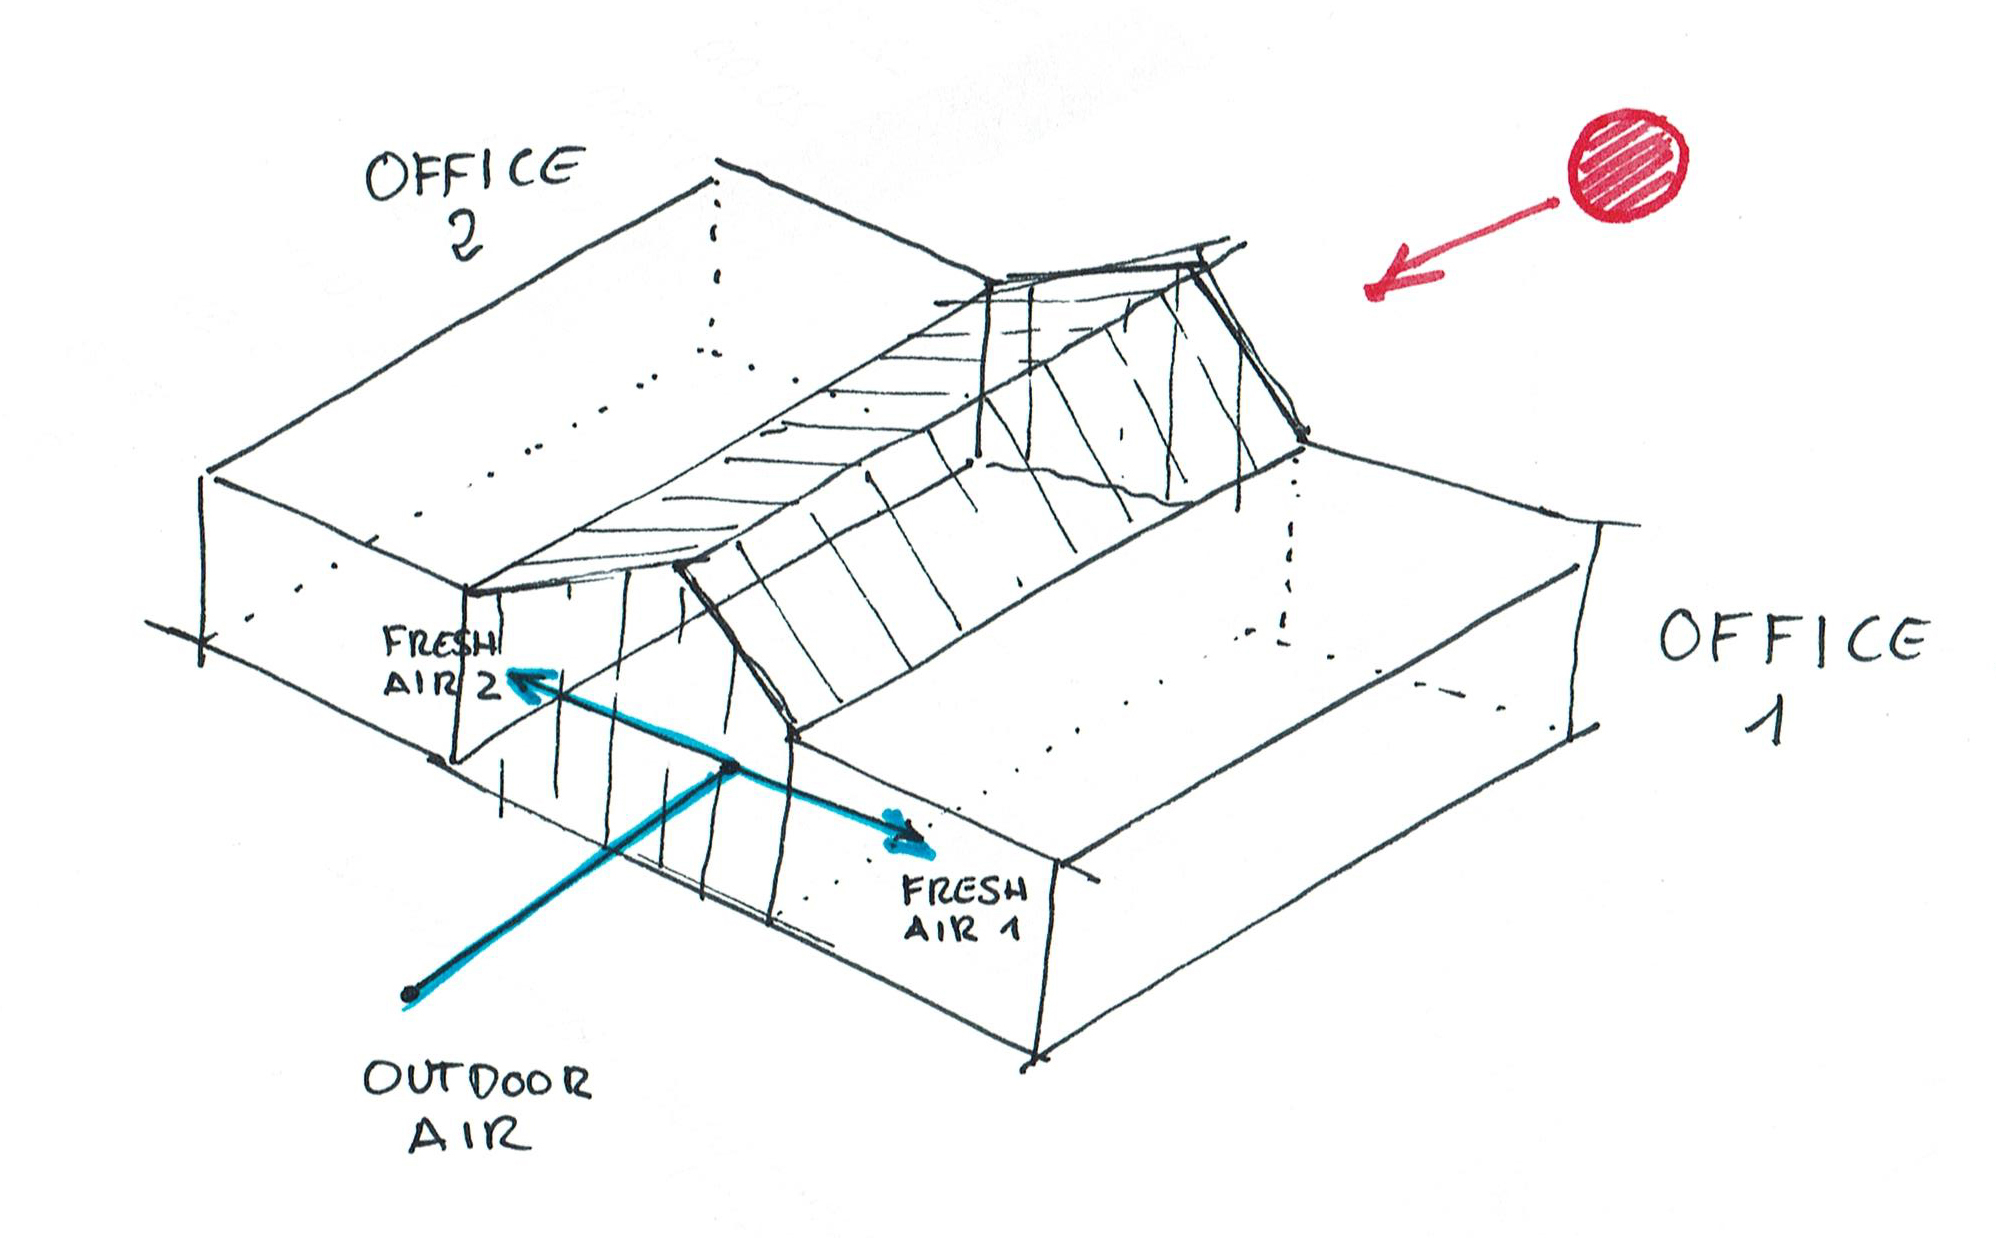 OFFICE
2
OFFICE
1
FRESH
AIR 2
FRESH
AIR 1
OUTDOOR
AIR